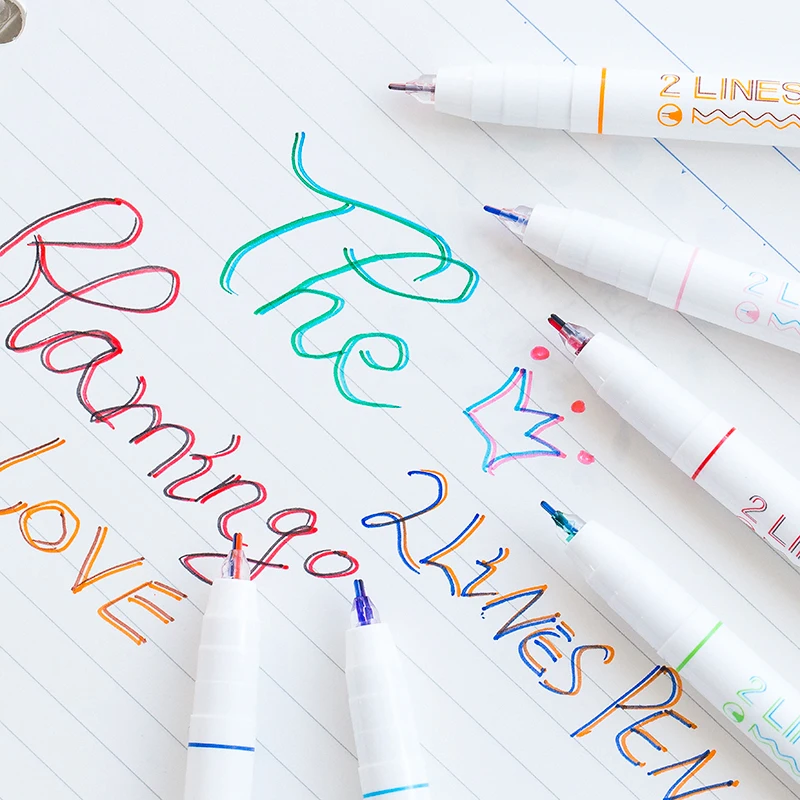 The
Flamingo
LOVE
2LiNES PEN
2 LINES
2 L
2 LI
2 LI